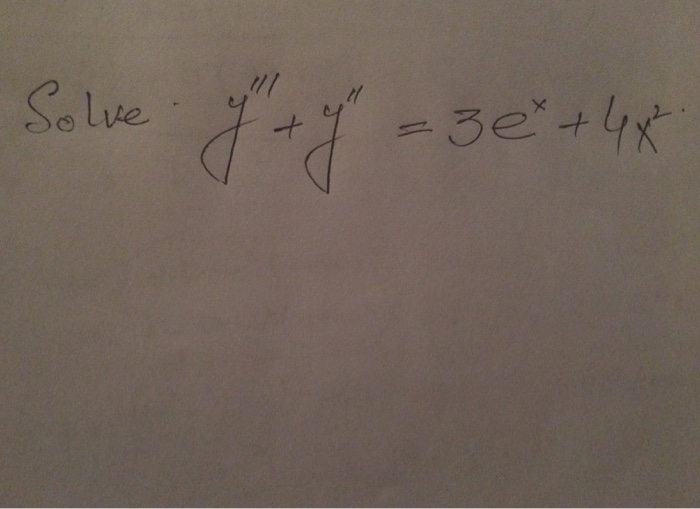 Solve. y''' + y'' = 3e^x + 4x^2.